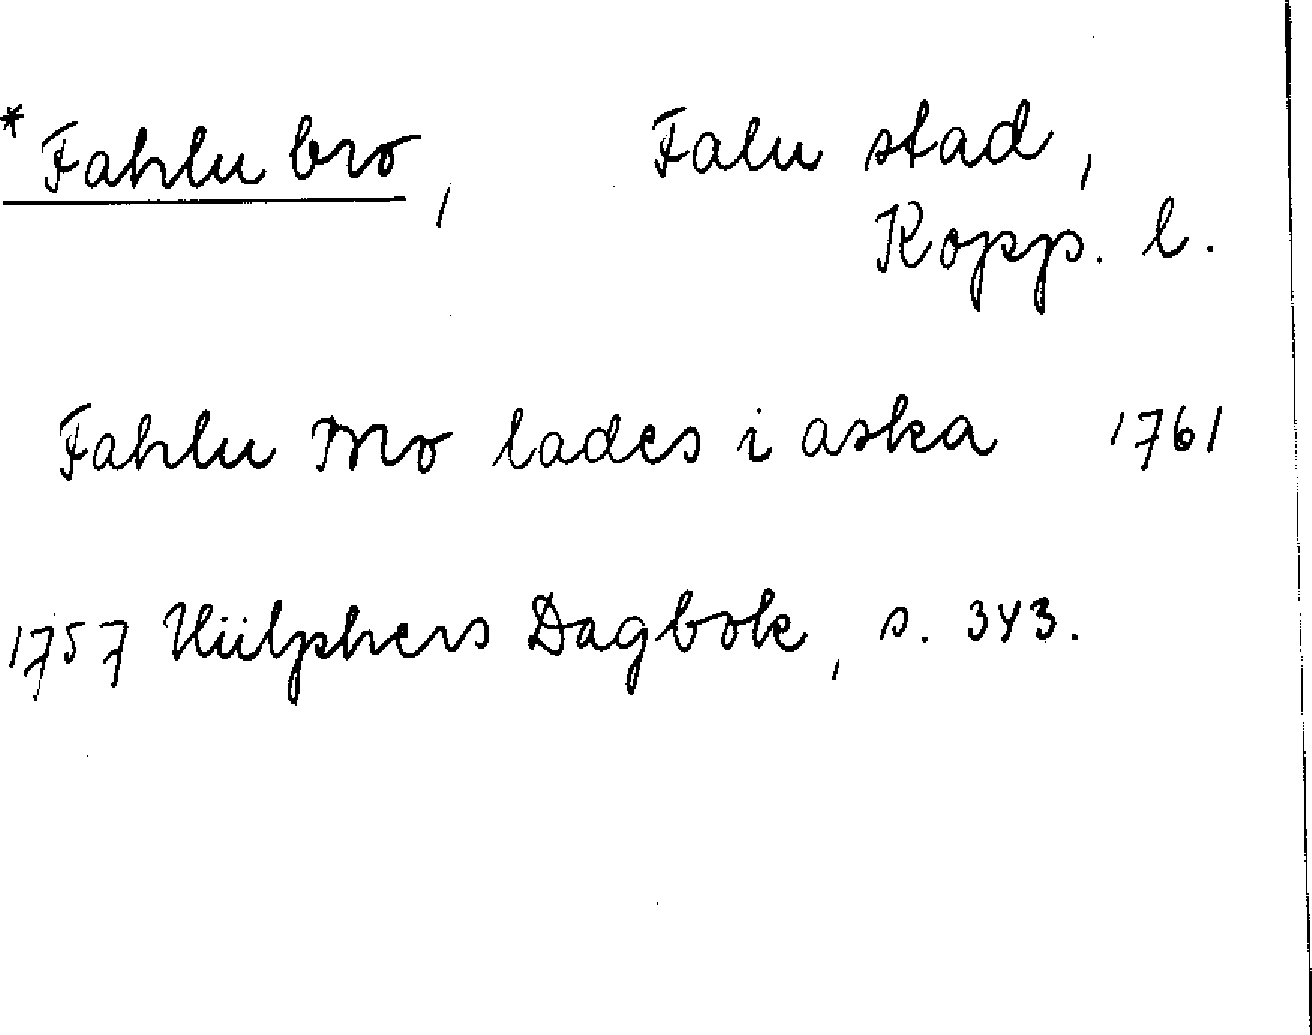 * Fahlu bro, Falu stad,
Kopp. l.
Fahlu Bro lades i aska 1761
1757 Hülphers Dagbok, s. 343.